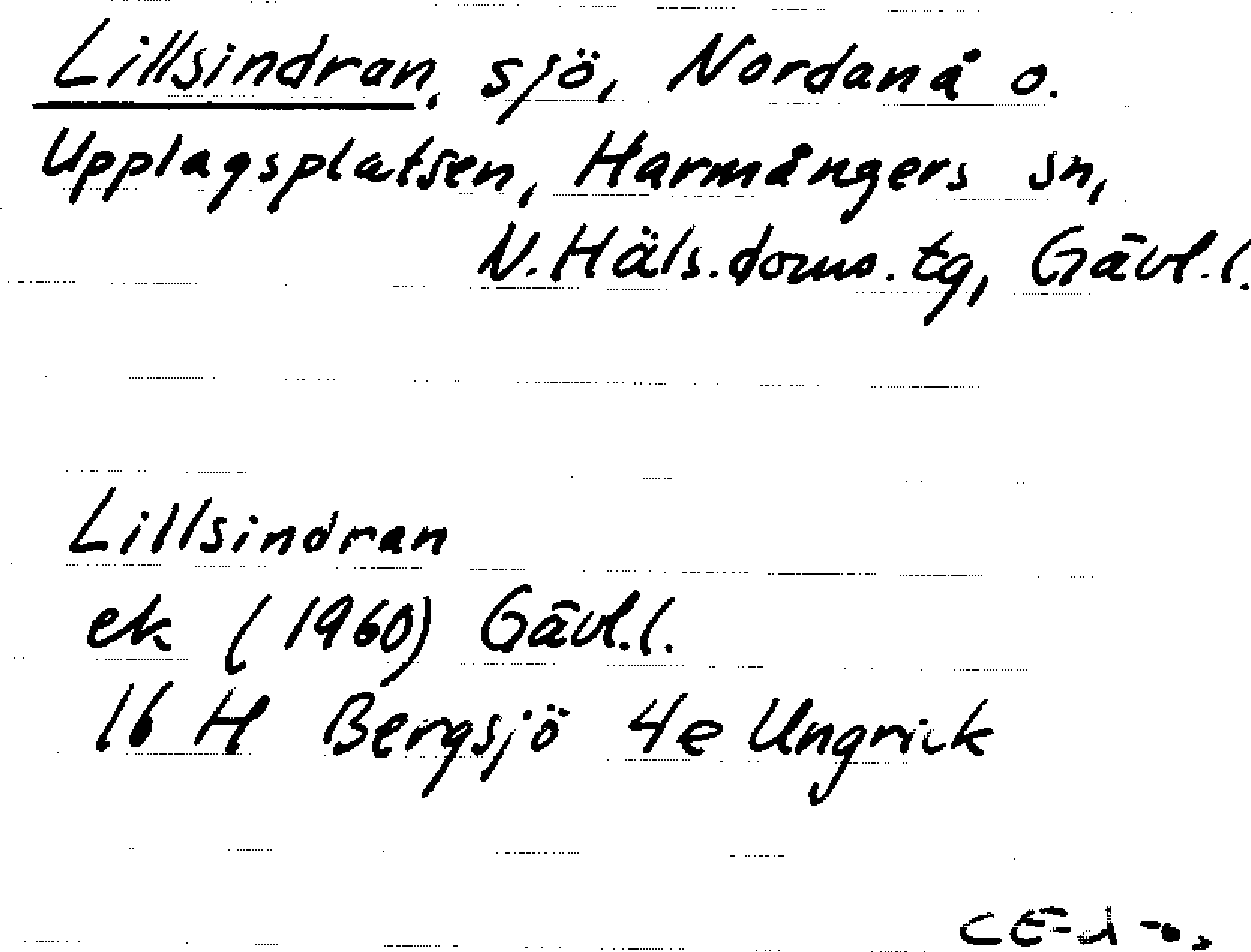 Lillsindran, sjö, Nordanå o.
Upplagsplatsen, Harmångers sn,
N.Häls.doms.tg, Gävl.l.
Lillsindran
ek (1960) Gävl.l.
16 H Bergsjö 4e Ungrick